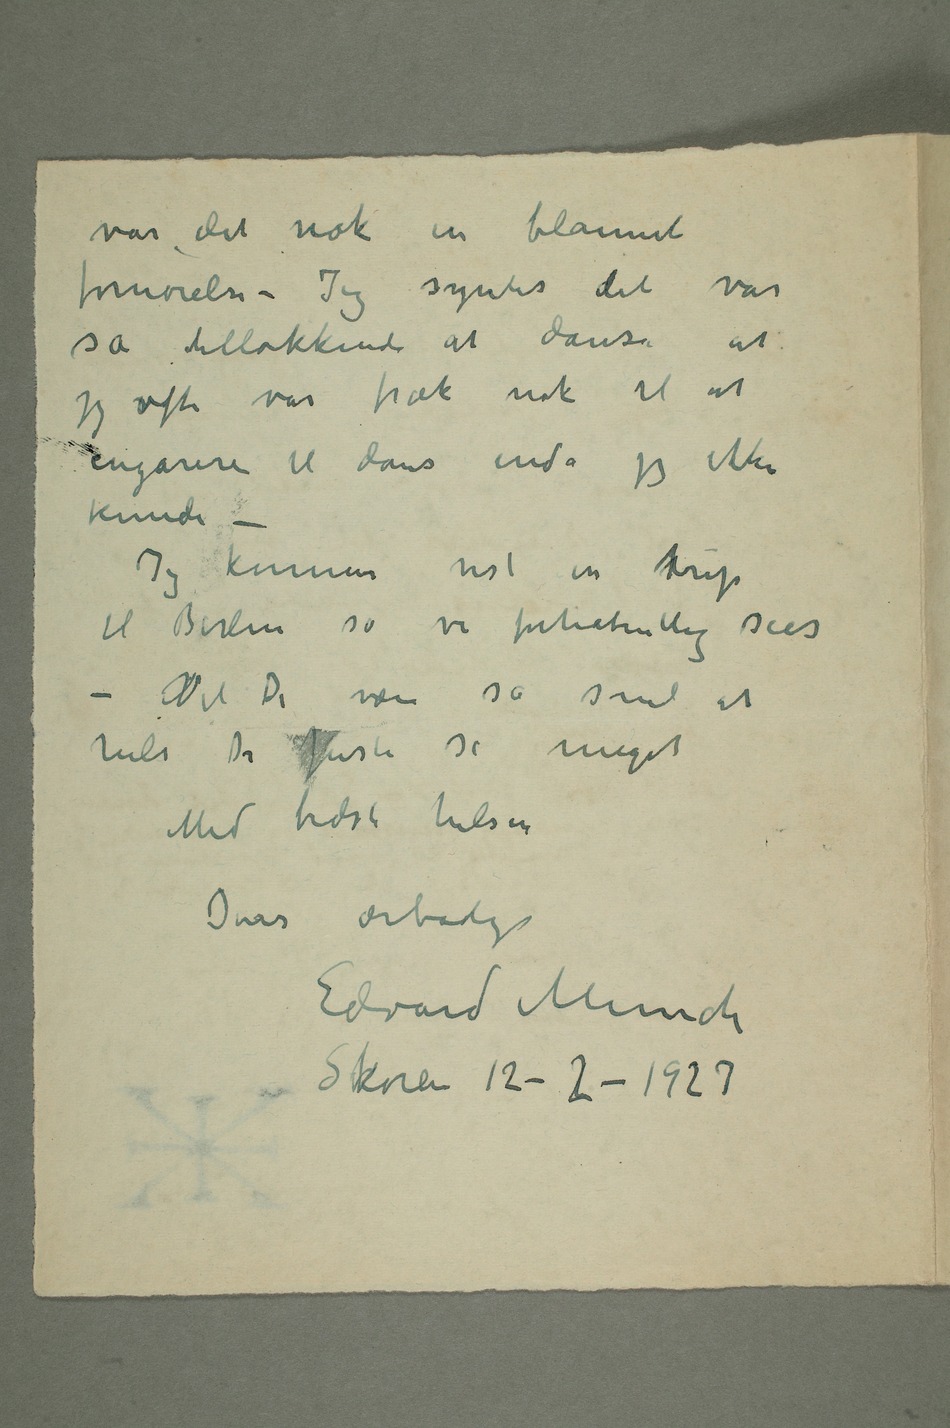 var det nok en blannet
fornøielse – Jeg syntes det var
så tillokkende at danse at
jeg ofte var fræk nok til at
engagere til dans endå jeg ikke
kunde –
Jeg kommer vist en trip
til Berlin så vi forhåbentlig sees
– Vil De være så snil at
hilse De fleste så meget
Med bedste hilsen
Deres ærbødige
Edvard Munch
Skøien 12 – 2 – 1927